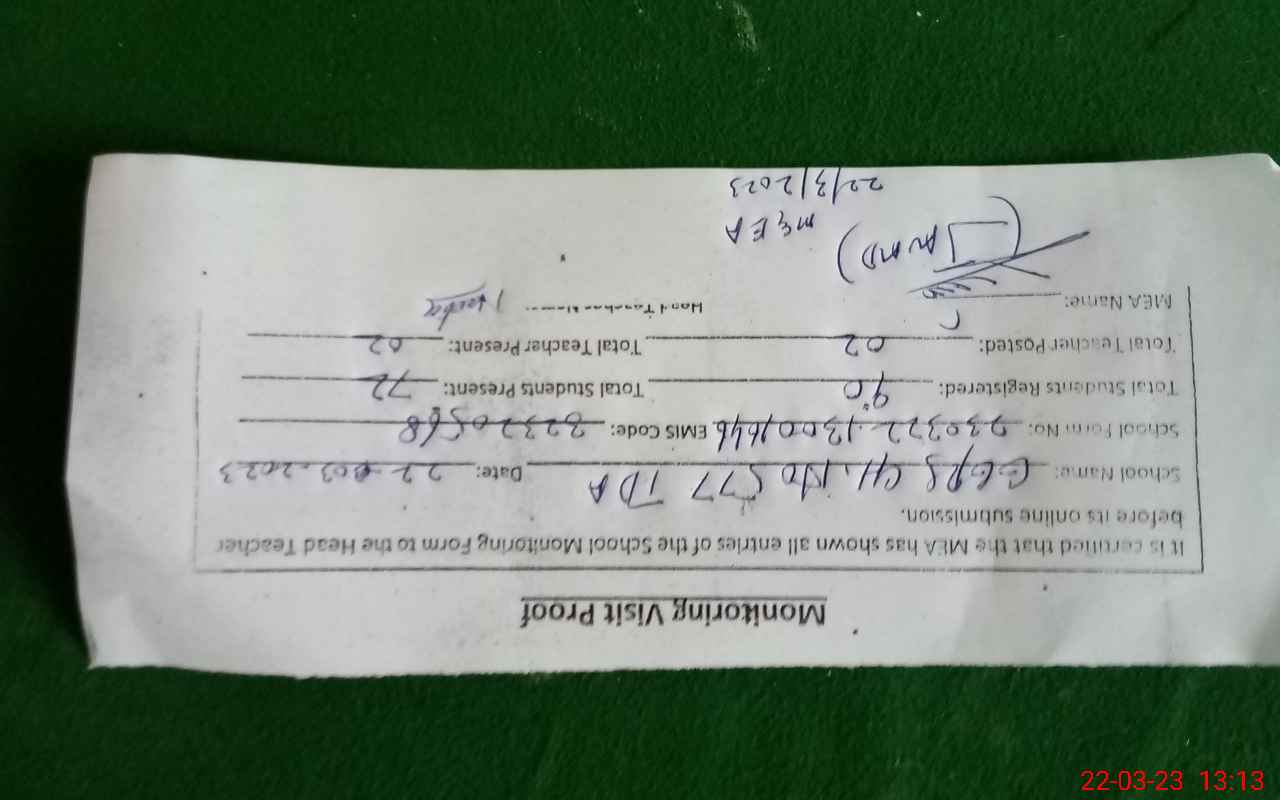 Monitoring Visit Proof
It is certified that the MEA has shown all entries of the School Monitoring Form to the Head Teacher
before its online submission.
School Name: GGPS CH. No 577 TDA Date: 22-03-2023
School Form No: 230322-13001646 EMIS Code: 32320568
Total Students Registered: 90 Total Students Present: 72
Total Teacher Posted: 02 Total Teacher Present: 02
MEA Name: Head Teacher Name:
MEA
22/3/2023
22-03-23 13:13